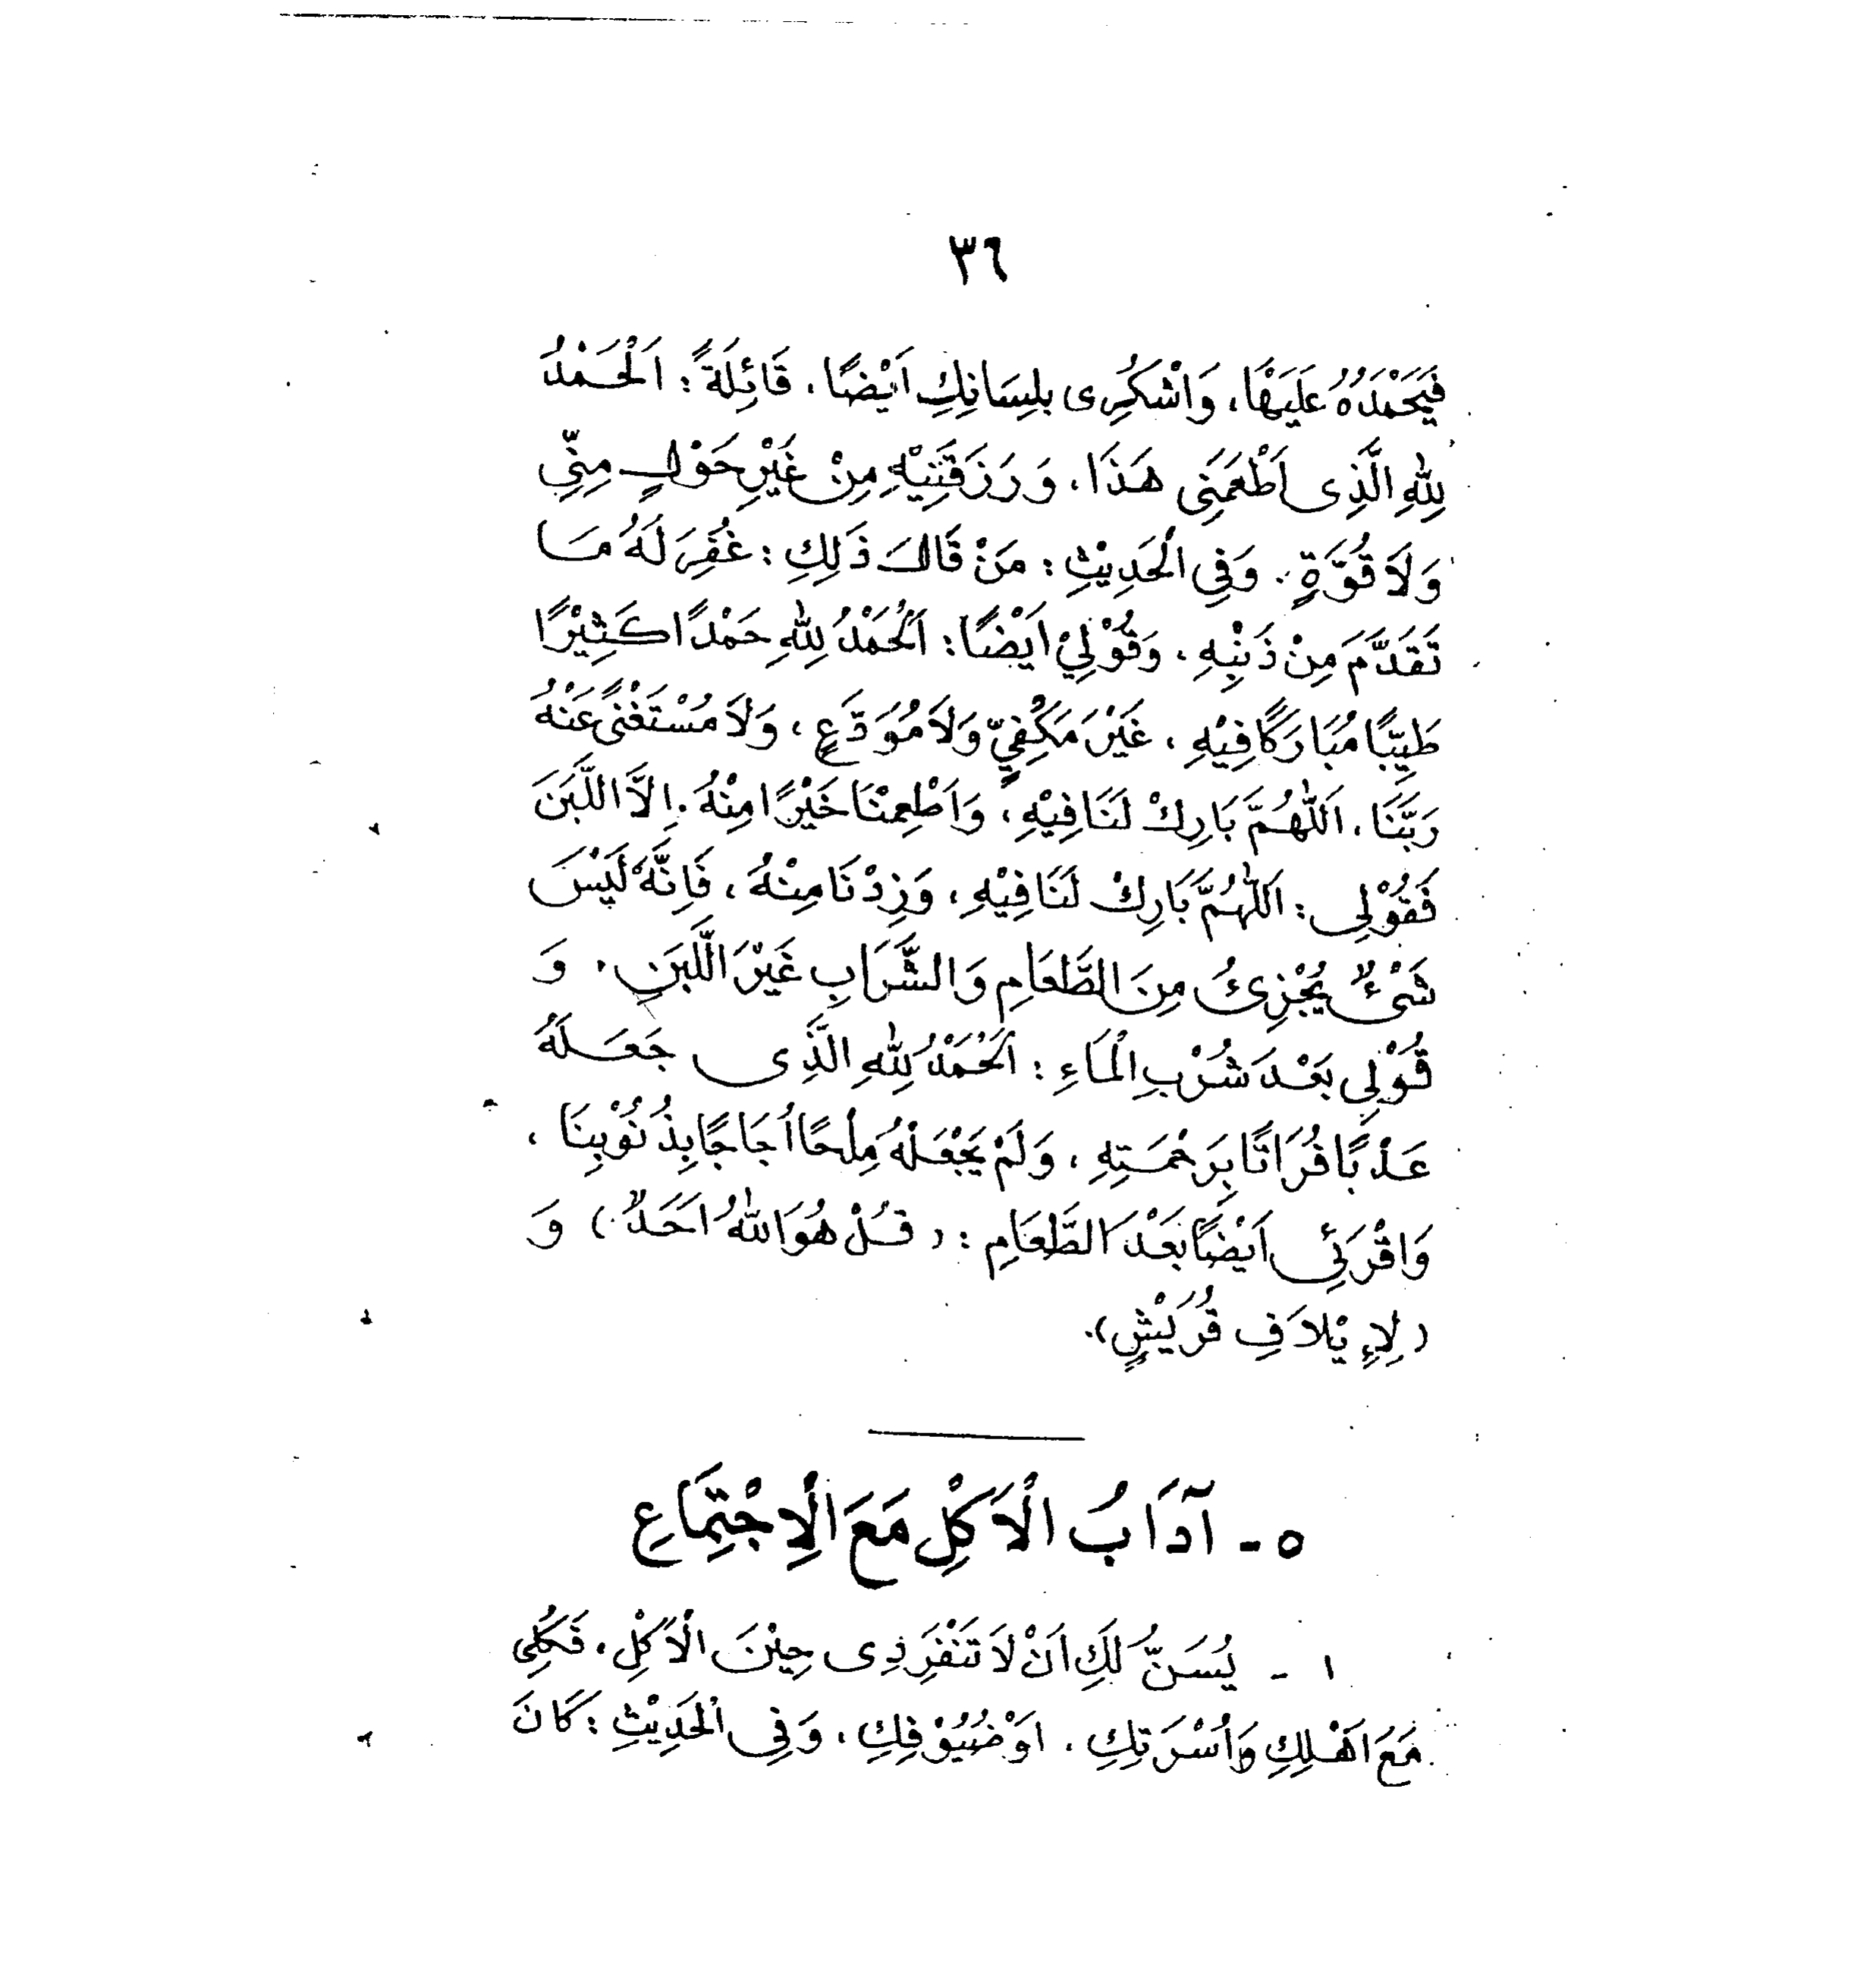 ٣٦
فَيَحْمَدُهُ عَلَيْهَا، وَاشْكُرِى بِلِسَانِكِ اَيْضًا، قَائِلَةً: اَلْحَمْدُ
لِلّٰهِ الَّذِى اَطْعَمَنِى هَذَا، وَرَزَقَنِيْهِ مِنْ غَيْرِ حَوْلٍ مِنِّي
وَلَا قُوَّةٍ. وَفِي الْحَدِيْثِ: مَنْ قَالَ ذَلِكِ: غُفِرَ لَهُ مَا
تَقَدَّمَ مِنْ ذَنْبِهِ، وَقُوْلِيْ اَيْضًا: اَلْحَمْدُ لِلّٰهِ حَمْدًا كَثِيْرًا
طَيِّبًا مُبَارَكًا فِيْهِ، غَيْرَ مَكْفِيٍّ وَلَا مُوَدَّعٍ، وَلَا مُسْتَغْنًى عَنْهُ
رَبَّنَا، اَللّٰهُمَّ بَارِكْ لَنَا فِيْهِ، وَاَطْعِمْنَا خَيْرًا مِنْهُ. اِلَّا اللَّبَنَ
فَقُوْلِى: اَللّٰهُمَّ بَارِكْ لَنَا فِيْهِ، وَزِدْنَا مِنْهُ، فَاِنَّهُ لَيْسَ
شَىْءٌ يُجْزِئُ مِنَ الطَّعَامِ وَالشَّرَابِ غَيْرَ اللَّبَنِ. وَ
قُوْلِي بَعْدَ شُرْبِ الْمَاءِ: اَلْحَمْدُ لِلّٰهِ الَّذِى جَعَلَهُ
عَذْبًا فُرَاتًا بِرَحْمَتِهِ، وَلَمْ يَجْعَلْهُ مِلْحًا اُجَاجًا بِذُنُوْبِنَا،
وَاقْرَئِى اَيْضًا بَعْدَ الطَّعَامِ: (قُلْ هُوَ اللّٰهُ اَحَدٌ) وَ
(لِاِيْلَافِ قُرَيْشٍ).
٥- آدَابُ الْاَكْلِ مَعَ الْاِجْتِمَاعِ
١ - يُسَنُّ لَكِ اَنْ لَا تَنْفَرِدِى حِيْنَ الْاَكْلِ، فَكُلِى
مَعَ اَهْلِكِ وَاُسْرَتِكِ، اَوْ ضُيُوْفِكِ، وَفِى الْحَدِيْثِ: كَانَ